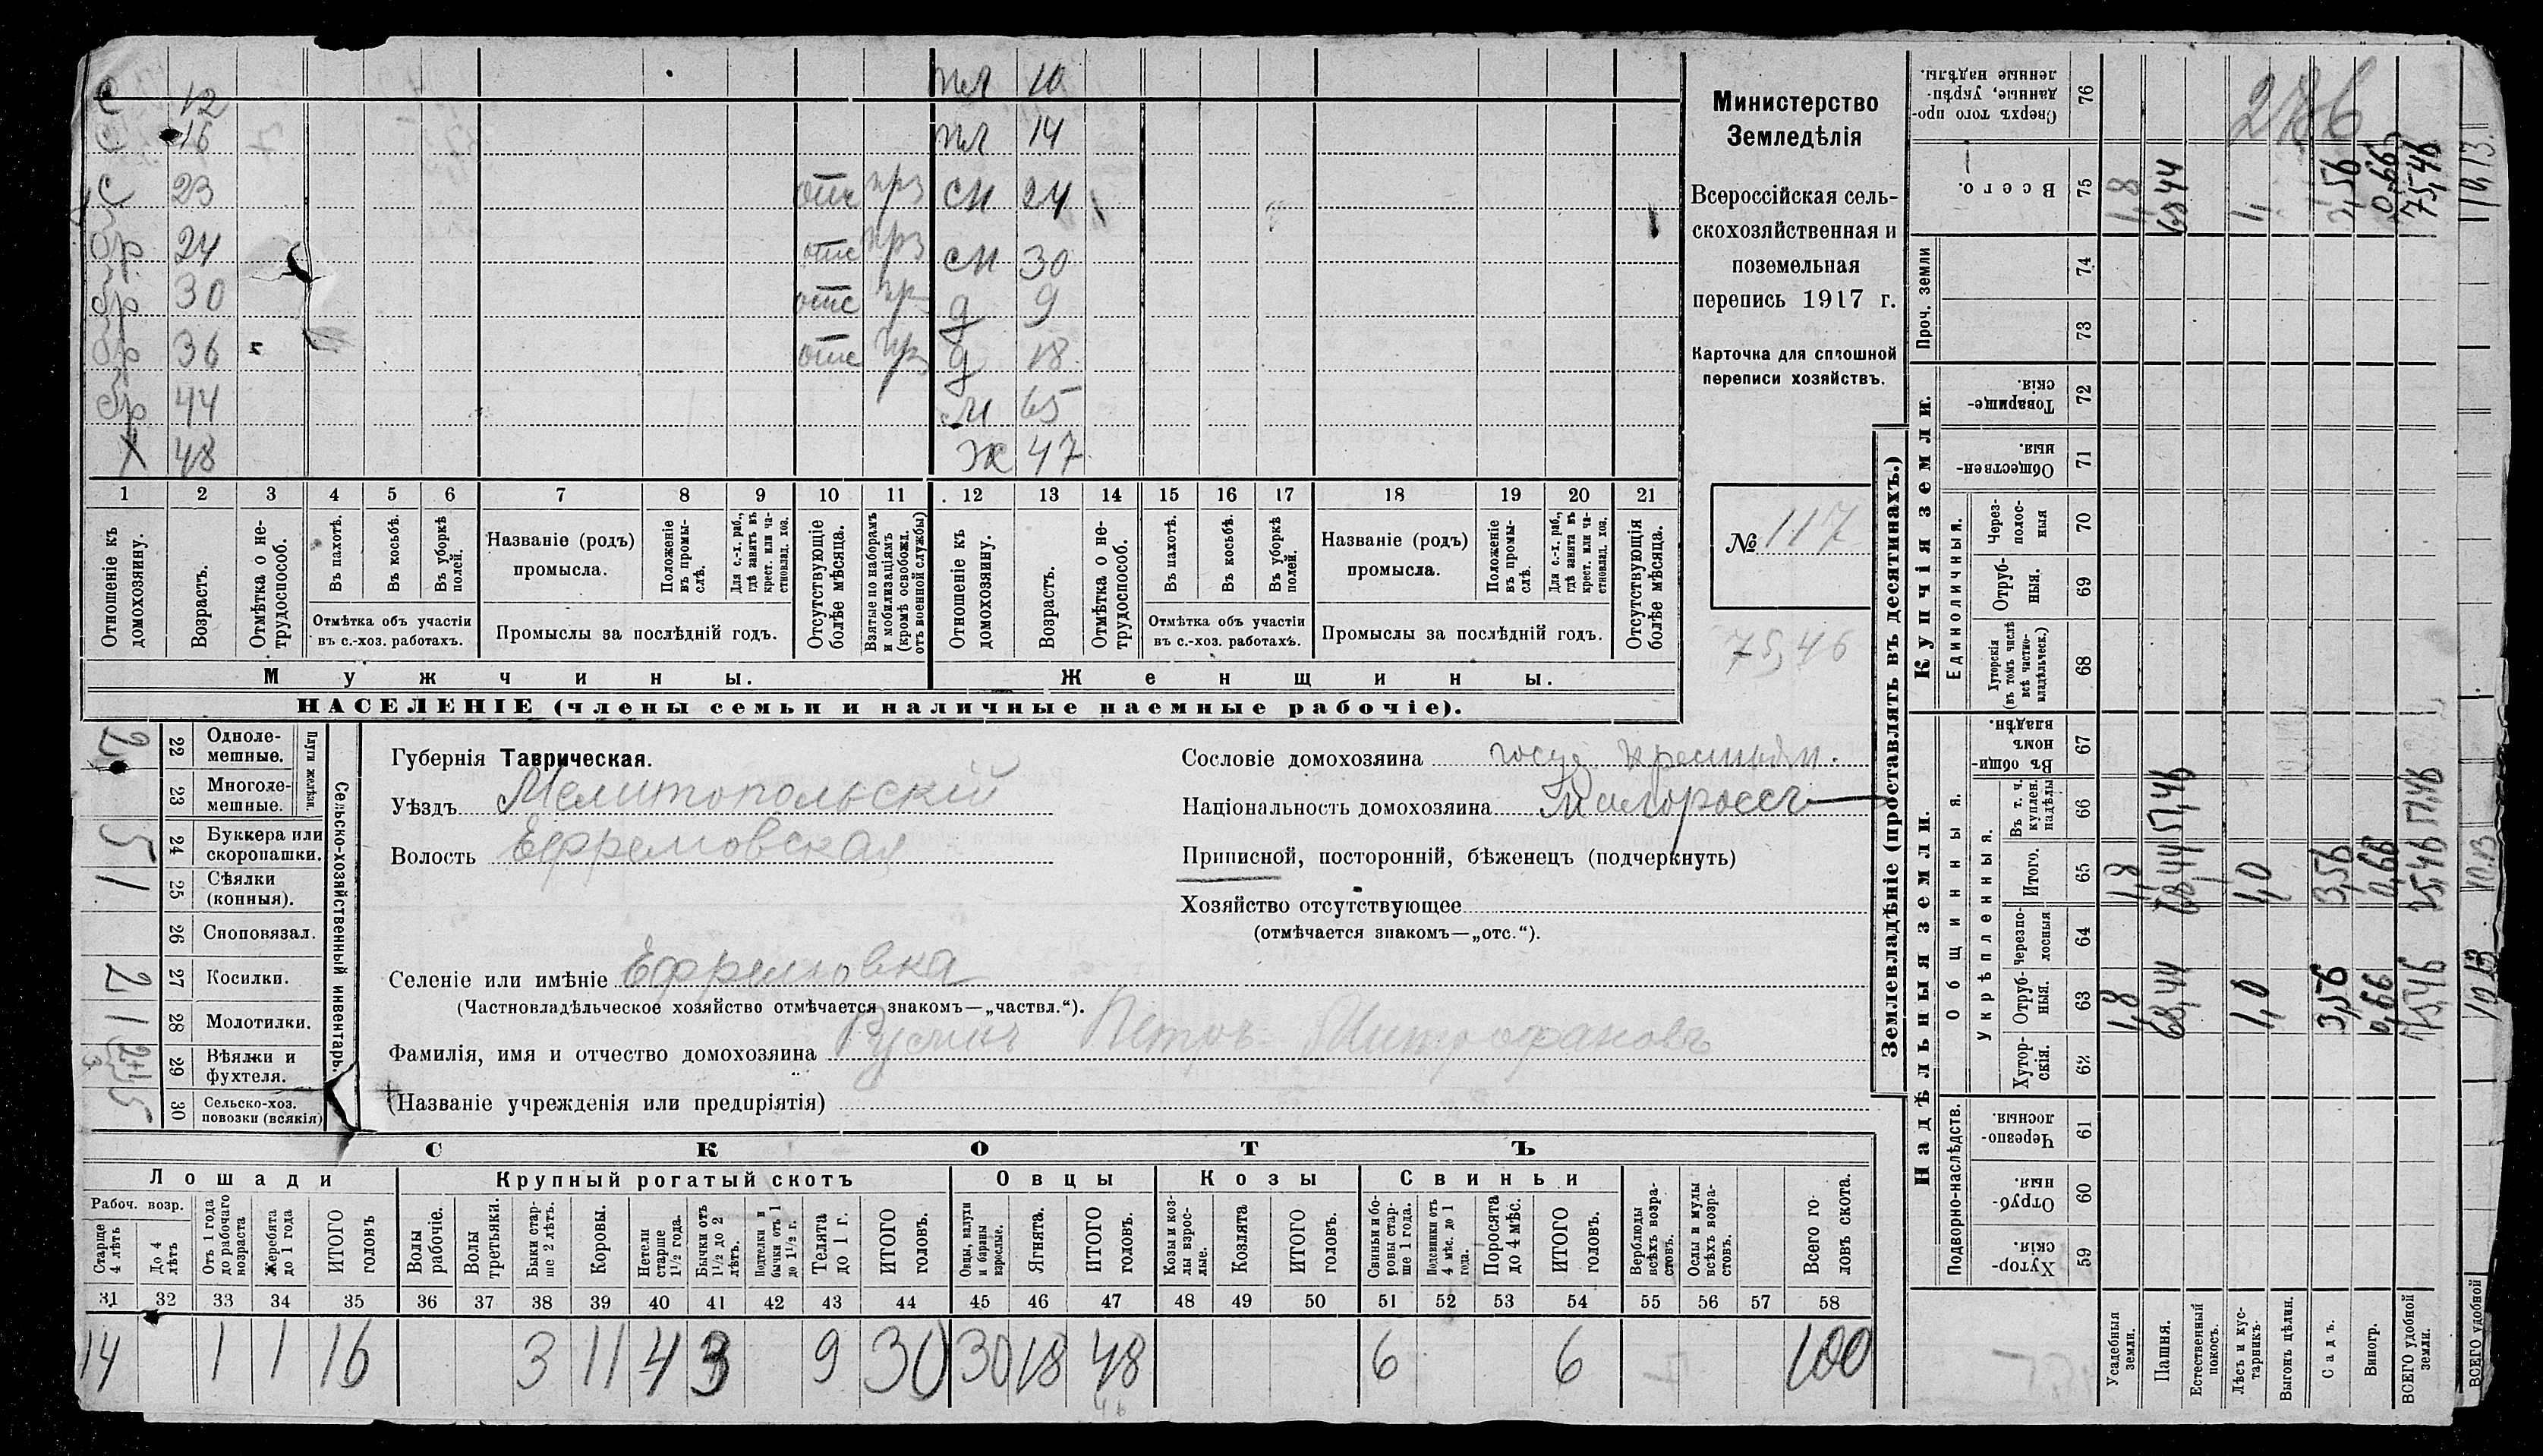 С 12 пл 10
С 16 пл 14
С 23 отс прз сн 24
бр 24 отс прз сн 30
бр 30 отс пр д 9
бр 36 отс пр д 18
бр 44 м 65
Х 48 ж 47
1 2 3 4 5 6 7 8 9 10 11 12 13 14 15 16 17 18 19 20 21
Отношеніе къ домохозяину.
Возрастъ.
Отмѣтка о не-трудоспособ.
Въ пахотѣ.
Въ косьбѣ.
Въ уборкѣ полей.
Отмѣтка объ участіи
въ с.-хоз. работахъ.
Названіе (родъ)
промысла.
Положеніе въ промы-слѣ.
Для с.-х. раб., гдѣ занятъ въ крест. или ча-стновлад. хоз.
Промыслы за послѣдній годъ.
Отсутствующіе болѣе мѣсяца.
Взятые по наборамъ и мобилизаціямъ (кромѣ освобожд. отъ военной службы)
Отношеніе къ домохозяину.
Возрастъ.
Отмѣтка о не-трудоспособ.
Въ пахотѣ.
Въ косьбѣ.
Въ уборкѣ полей.
Отмѣтка объ участіи
въ с.-хоз. работахъ.
Названіе (родъ)
промысла.
Положеніе въ промы-слѣ.
Для с.-х. раб., гдѣ занята въ крест. или ча-стновлад. хоз.
Промыслы за послѣдній годъ.
Отсутствующія болѣе мѣсяца.
Мужчины. Женщины.
НАСЕЛЕНІЕ (члены семьи и наличные наемные рабочіе).
Министерство
Земледѣлія
Всероссійская сель-
скохозяйственная и
поземельная
перепись 1917 г.
Карточка для сплошной
переписи хозяйствъ.
№ 117
75,46
Сельско-хозяйственный инвентарь.
Плуги желѣзн.
2 22 Одноле-
мешные.
23 Многоле-
мешные.
5 24 Буккера или
скоропашки.
1 25 Сѣялки
(конныя).
26 Сноповязал.
2 27 Косилки.
1 28 Молотилки.
2+1 3 29 Вѣялки и
фухтеля.
5 30 Сельско-хоз.
повозки (всякія)
Губернія Таврическая.
Уѣздъ Мелитопольскій
Волость Ефремовская
Селеніе или имѣніе Ефремовка
(Частновладѣльческое хозяйство отмѣчается знакомъ—„частвл.“).
Фамилія, имя и отчество домохозяина Петръ Митрофановъ
(Названіе учрежденія или предпріятія)
Сословіе домохозяина госуд. крестьян.
Національность домохозяина Малороссъ
Приписной, посторонній, бѣженецъ (подчеркнуть)
Хозяйство отсутствующее
(отмѣчается знакомъ—„отс.“).
СКОТЪ
Лошади Крупный рогатый скотъ Овцы Козы Свиньи
Рабоч. возр.
Старше 4 лѣтъ
До 4 лѣтъ
Отъ 1 года до рабочаго возраста
Жеребята до 1 года
ИТОГО головъ
Волы рабочіе.
Волы третьяки.
Быки стар-ше 2 лѣтъ.
Коровы.
Нетели старше 1½ года.
Бычки отъ 1½ до 2 лѣтъ.
Подтелки и бычки отъ 1 до 1½ г.
Телята до 1 г.
ИТОГО головъ.
Овцы, валухи и бараны взрослые.
Ягнята.
ИТОГО головъ.
Козы и коз-лы взрос-лые.
Козлята
ИТОГО головъ.
Свиньи и бо-ровы стар-ше 1 года.
Подсвинки отъ 4 мѣс. до 1 года.
Поросята до 4 мѣс.
ИТОГО головъ.
Верблюды всѣхъ возра-стовъ.
Ослы и мулы всѣхъ возра-стовъ.
Всего го-ловъ скота.
31 32 33 34 35 36 37 38 39 40 41 42 43 44 45 46 47 48 49 50 51 52 53 54 55 56 57 58
14 1 1 16 3 11 4 3 9 30 30 18 48 6 6 100
Землевладѣніе (проставлять въ десятинахъ.)
Купчія земли.
Надѣльныя земли.
276
Сверхъ того про-данные, укрѣп-ленные надѣлы. 76
Всего. 75 1,8 68,44 1, 3,56 0,66 75,46 10,13
Проч. земли 74
73
Товарище-скія. 72
Обществен-ныя 71
Единоличныя.
Через-полос-ныя 70
Отруб-ныя. 69
Хуторскія (въ томъ числѣ всѣ частно-владѣльческ.) 68
Общинныя.
Въ общин-номъ владѣн. 67
Укрѣпленныя.
Въ т. ч. куплен. надѣлы 66 57,46 57,46
Итого. 65 1,8 68,44 1,0 3,56 0,66 75,46 10.13
Черезпо-лосныя 64
Отруб-ныя. 63 1,8 68,44 1,0 3,56 0,66 75,46 10.13
Хутор-скія. 62
Подворно-наслѣдств.
Черезпо-лосныя. 61
Отруб-ныя. 60
Хутор-скія. 59
Усадебныя земли.
Пашня.
Естественный покосъ.
Лѣсъ и кус-тарникъ.
Выгонъ цѣлин.
Садъ.
Виногр.
ВСЕГО удобной земли.
ВСЕГО удобной